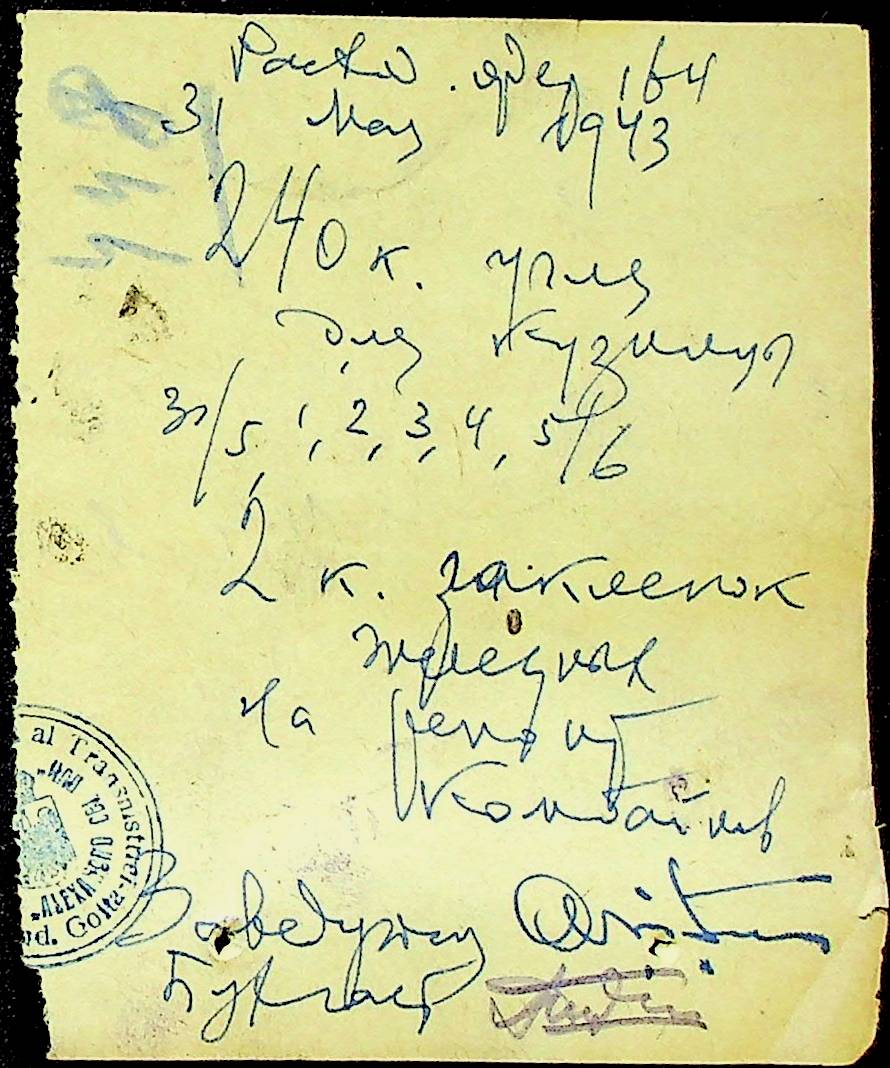 Расход. ордер 164
31 Мая 1943
240 к. угля
для кузницы
31/5, 1, 2, 3, 4, 5/6
2 к. заклепок
железных
на ремонт
Комбайнов
Заведующий
Бухгалт
448
al Transnistriei
"ALEXANDRU CEL BUN"
Jud. Golta